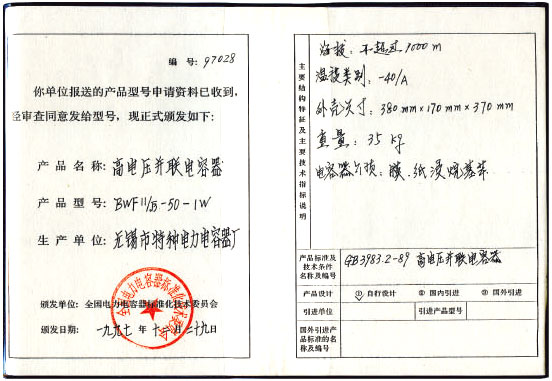 编号:97028
你单位报送的产品型号申请资料已收到,
经审查同意发给型号,现正式颁发如下:
产品名称:高电压并联电容器
产品型号:BWF11/√3-50-1W
生产单位:无锡市特种电力电容器厂
颁发单位:全国电力电容器标准化技术委员会
颁发日期:一九九七年十二月二十九日
全国电力电容器标准化技术委员会
主要结构特征及主要技术指标说明
海拔:不超过1000m
温度类别:-40/A
外壳尺寸:380mm×170mm×370mm
重量:35kg
电容器介质:膜、纸浸烷基苯
产品标准及技术条件名称及编号
GB3983.2-89 高电压并联电容器
产品设计 ①自行设计 ②国内引进 ③国外引进
引进单位 引进产品型号
国外引进产品标准的名称及编号